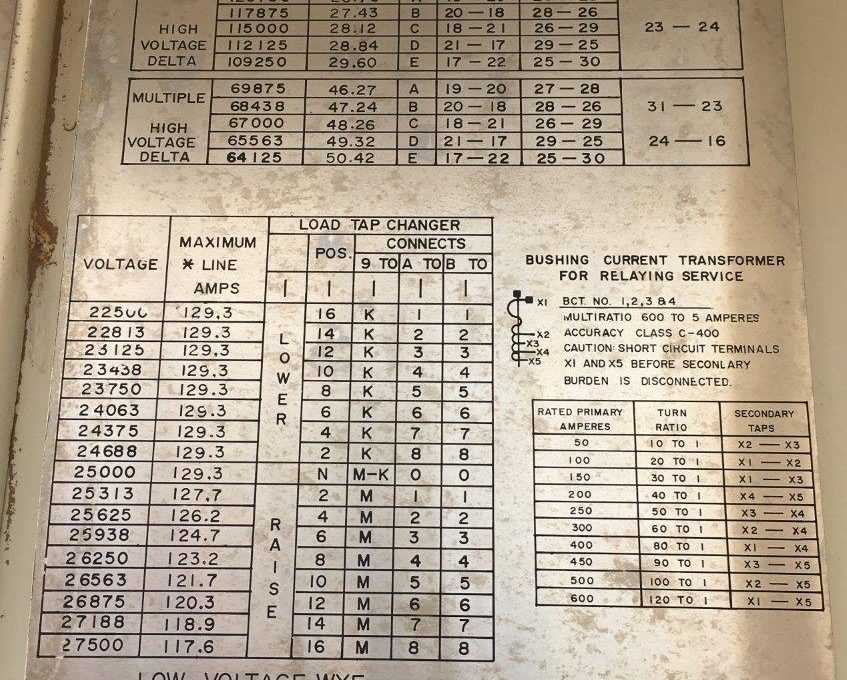 117875 27.43 B 20 — 18 28 — 26
HIGH 115000 28.12 C 18 — 21 26 — 29 23 — 24
VOLTAGE 112125 28.84 D 21 — 17 29 — 25
DELTA 109250 29.60 E 17 — 22 25 — 30
69875 46.27 A 19 — 20 27 — 28
MULTIPLE 68438 47.24 B 20 — 18 28 — 26 31 — 23
HIGH 67000 48.26 C 18 — 21 26 — 29
VOLTAGE 65563 49.32 D 21 — 17 29 — 25 24 — 16
DELTA 64125 50.42 E 17 — 22 25 — 30
LOAD TAP CHANGER
VOLTAGE MAXIMUM * LINE AMPS POS. CONNECTS
9 TO A TO B TO
22500 129.3 LOWER 16 K 1 1
22813 129.3 14 K 2 2
23125 129.3 12 K 3 3
23438 129.3 10 K 4 4
23750 129.3 8 K 5 5
24063 129.3 6 K 6 6
24375 129.3 4 K 7 7
24688 129.3 2 K 8 8
25000 129.3 N M-K 0 0
25313 127.7 RAISE 2 M 1 1
25625 126.2 4 M 2 2
25938 124.7 6 M 3 3
26250 123.2 8 M 4 4
26563 121.7 10 M 5 5
26875 120.3 12 M 6 6
27188 118.9 14 M 7 7
27500 117.6 16 M 8 8
LOW VOLTAGE WYE
BUSHING CURRENT TRANSFORMER
FOR RELAYING SERVICE
X1 BCT. NO. 1,2,3 & 4
MULTIRATIO 600 TO 5 AMPERES
X2 ACCURACY CLASS C-400
X3
X4 CAUTION: SHORT CIRCUIT TERMINALS
X5 X1 AND X5 BEFORE SECONDARY
BURDEN IS DISCONNECTED.
RATED PRIMARY TURN SECONDARY
AMPERES RATIO TAPS
50 10 TO 1 X2 — X3
100 20 TO 1 X1 — X2
150 30 TO 1 X1 — X3
200 40 TO 1 X4 — X5
250 50 TO 1 X3 — X4
300 60 TO 1 X2 — X4
400 80 TO 1 X1 — X4
450 90 TO 1 X3 — X5
500 100 TO 1 X2 — X5
600 120 TO 1 X1 — X5